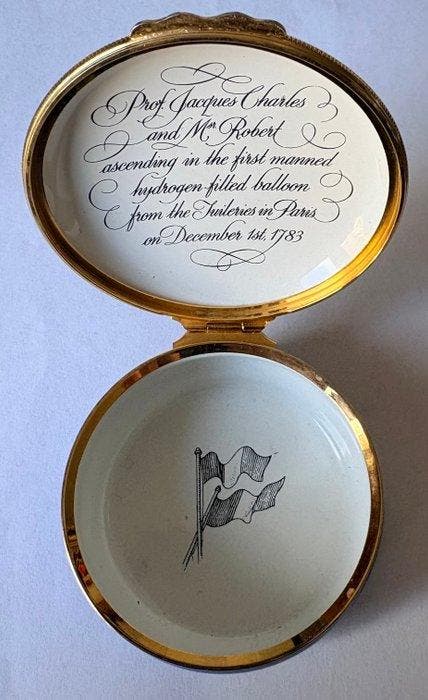 Prof. Jacques Charles
and Msr Robert
ascending in the first manned
hydrogen-filled balloon
from the Tuileries in Paris
on December 1st, 1783